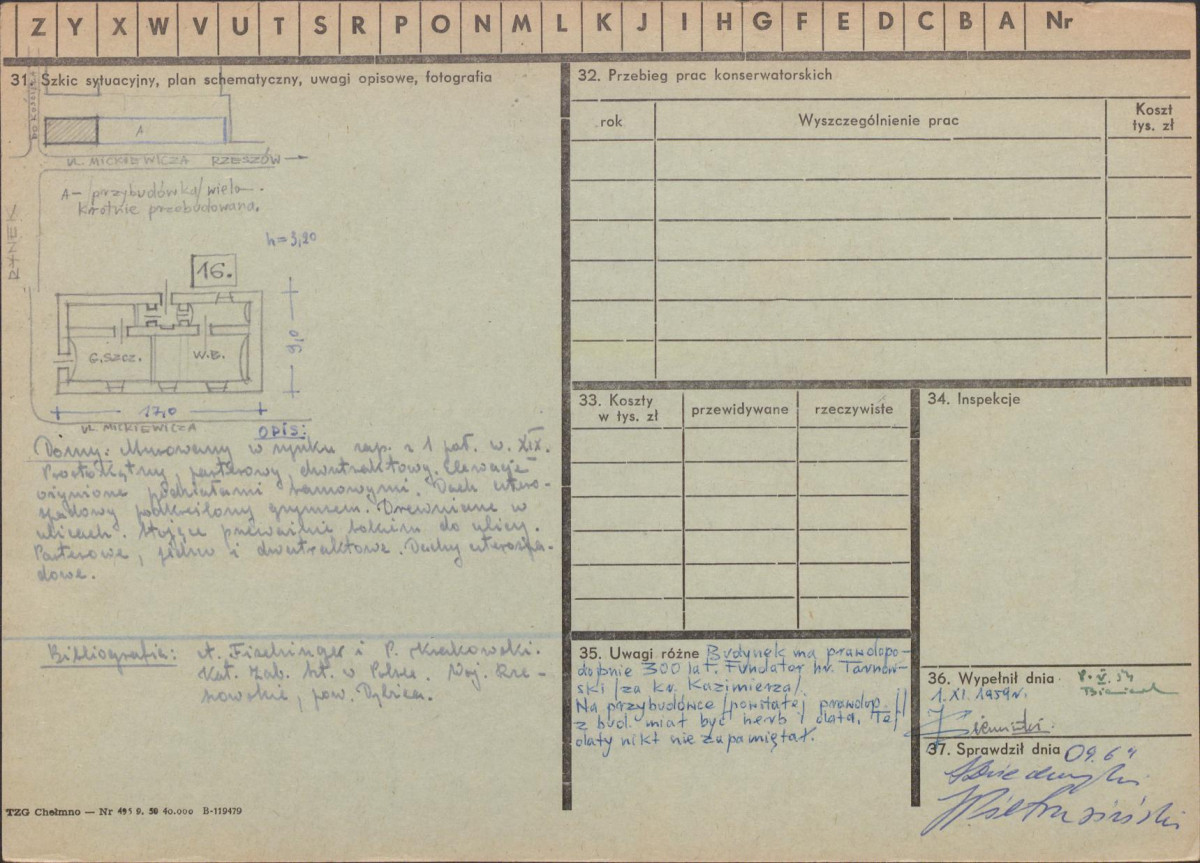 Z Y X W V U T S R P O N M L K J I H G F E D C B A Nr
31. Szkic sytuacyjny, plan schematyczny, uwagi opisowe, fotografia
A
UL. MICKIEWICZA RZESZÓW
A – przybudówka/wielo-
krotnie przebudowana.
RYNEK
h=3,20
16.
G.SZCZ.
W.B.
9,0
17,0
UL. MICKIEWICZA
OPIS:
Domy: Murowany w rynku zap. z 1 poł. w. XIX.
Prostokątny, parterowy, dwutraktowy. Elewacje
ożywione podziałami ramowymi. Dach cztero-
spadowy podkreślony gzymsem. Drewniane w
ulicach. Stojące przeważnie bokiem do ulicy.
Parterowe, jedno i dwutraktowe. Dachy czterospa-
dowe.
Bibliografia: A. Fischinger i P. Krakowski.
Kat. Zab. Szt. w Polsce. Woj. Rze-
szowskie, pow. Dębica.
TZG Chełmno — Nr 495 9. 58 40.000 B-119479
32. Przebieg prac konserwatorskich
rok
Wyszczególnienie prac
Koszt
tys. zł
33. Koszty
w tys. zł
przewidywane
rzeczywiste
34. Inspekcje
35. Uwagi różne Budynek ma prawdopo-
dobnie 300 lat. Fundator hr. Tarnow-
ski /za kr. Kazimierza/
Na przybudówce /powstałej prawdop.
z bud. miał być herb i data. Tej
daty nikt nie zapamiętał.
36. Wypełnił dnia
1.XI.1959r.
37. Sprawdził dnia 09.64